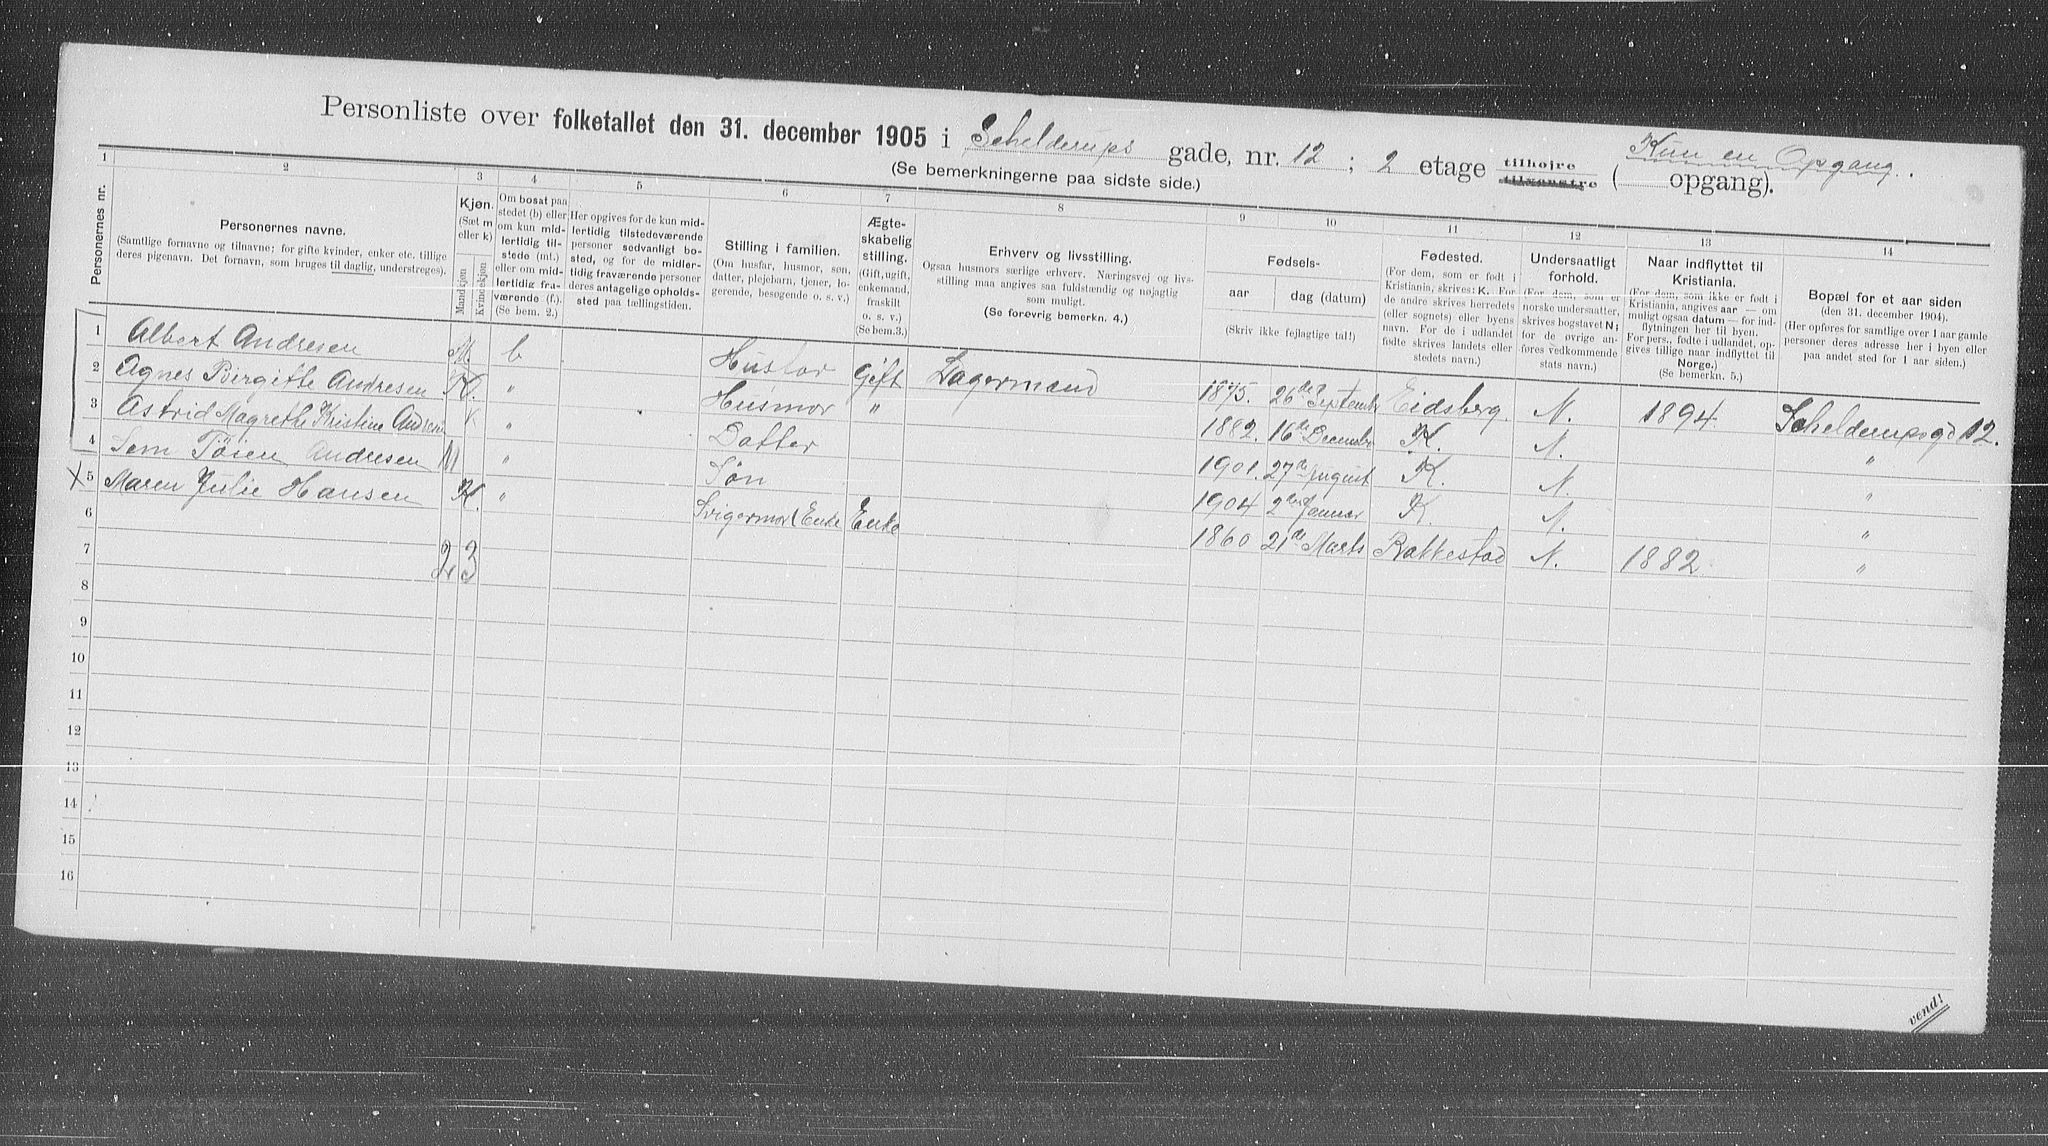 Personliste over folketallet den 31. december 1905 i Schelderups gade, nr. 12 ; 2 etage tilhøjre tilvenstre ( Kun en Opgang. opgang).
(Se bemerkningerne paa sidste side.)
1 2 3 4 5 6 7 8 9 10 11 12 13 14
Personernes nr.
Personernes navne.
(Samtlige fornavne og tilnavne; for gifte kvinder, enker etc. tillige
deres pigenavn. Det fornavn, som bruges til daglig, understreges).
Kjøn.
(Sæt m
eller k)
Mandkjøn
Kvindekjøn
Om bosat paa
stedet (b) eller
om kun mid-
lertidig til-
stede (mt.)
eller om mid-
lertidig fra-
værende (f.).
(Se bem. 2.)
Her opgives for de kun mid-
lertidig tilstedeværende
personer sedvanligt bo-
sted, og for de midler-
tidig fraværende personer
deres antagelige opholds-
sted paa tællingstiden.
Stilling i familien.
(Om husfar, husmor, søn,
datter, plejebarn, tjener, lo-
gerende, besøgende o. s. v.)
Ægte-
skabelig
stilling.
(Gift, ugift,
enkemand,
fraskilt
o. s. v.)
(Se bem.3.)
Erhverv og livsstilling.
Ogsaa husmors særlige erhverv. Næringsvej og livs-
stilling maa angives saa fuldstændig og nøjagtig
som muligt.
(Se forøvrig bemerkn. 4.)
Fødsels-
aar
dag (datum)
(Skriv ikke fejlagtige tal!)
Fødested.
(For dem, som er født i
Kristiania, skrives: K. For
de andre skrives herredets
(eller sognets) eller byens
navn. For de i udlandet
fødte skrives landets eller
stedets navn.)
Undersaatligt
forhold.
(For dem, som er
norske undersaatter,
skrives bogstavet N;
for de øvrige an-
føres vedkommende
stats navn.)
Naar indflyttet til
Kristiania.
(For dem, som ikke er født i
Kristiania, angives aar — om
muligt ogsaa datum — for ind-
flytningen her til byen.
For pers., fødte i udlandet, op-
gives tillige naar indflyttet til
Norge.)
(Se bemerkn. 5.)
Bopæl for et aar siden
(den 31. december 1904).
(Her opføres for samtlige over 1 aar gamle
personer deres adresse her i byen eller
paa andet sted for 1 aar siden.)
1 Albert Andresen M b Husfar Gift Lagermand 1875. 26de Septembr Eidsberg. N. 1894. Schelderupsgd 12.
2 Agnes Birgitte Andresen K. " Husmor " 1882. 16de Decembr K. N. "
3 Astrid Magrethe Kristine Andresen K " Datter 1901. 27de August K. N. "
4 Sem Andresen M " Søn 1904 2den Januar K. N. "
X 5 Maren Julie Hansen K. " Svigermor (Enke Enke 1860 21de Marts Rakkestad N. 1882. "
6
7 2 3
8
9
10
11
12
13
14
15
16
vend!